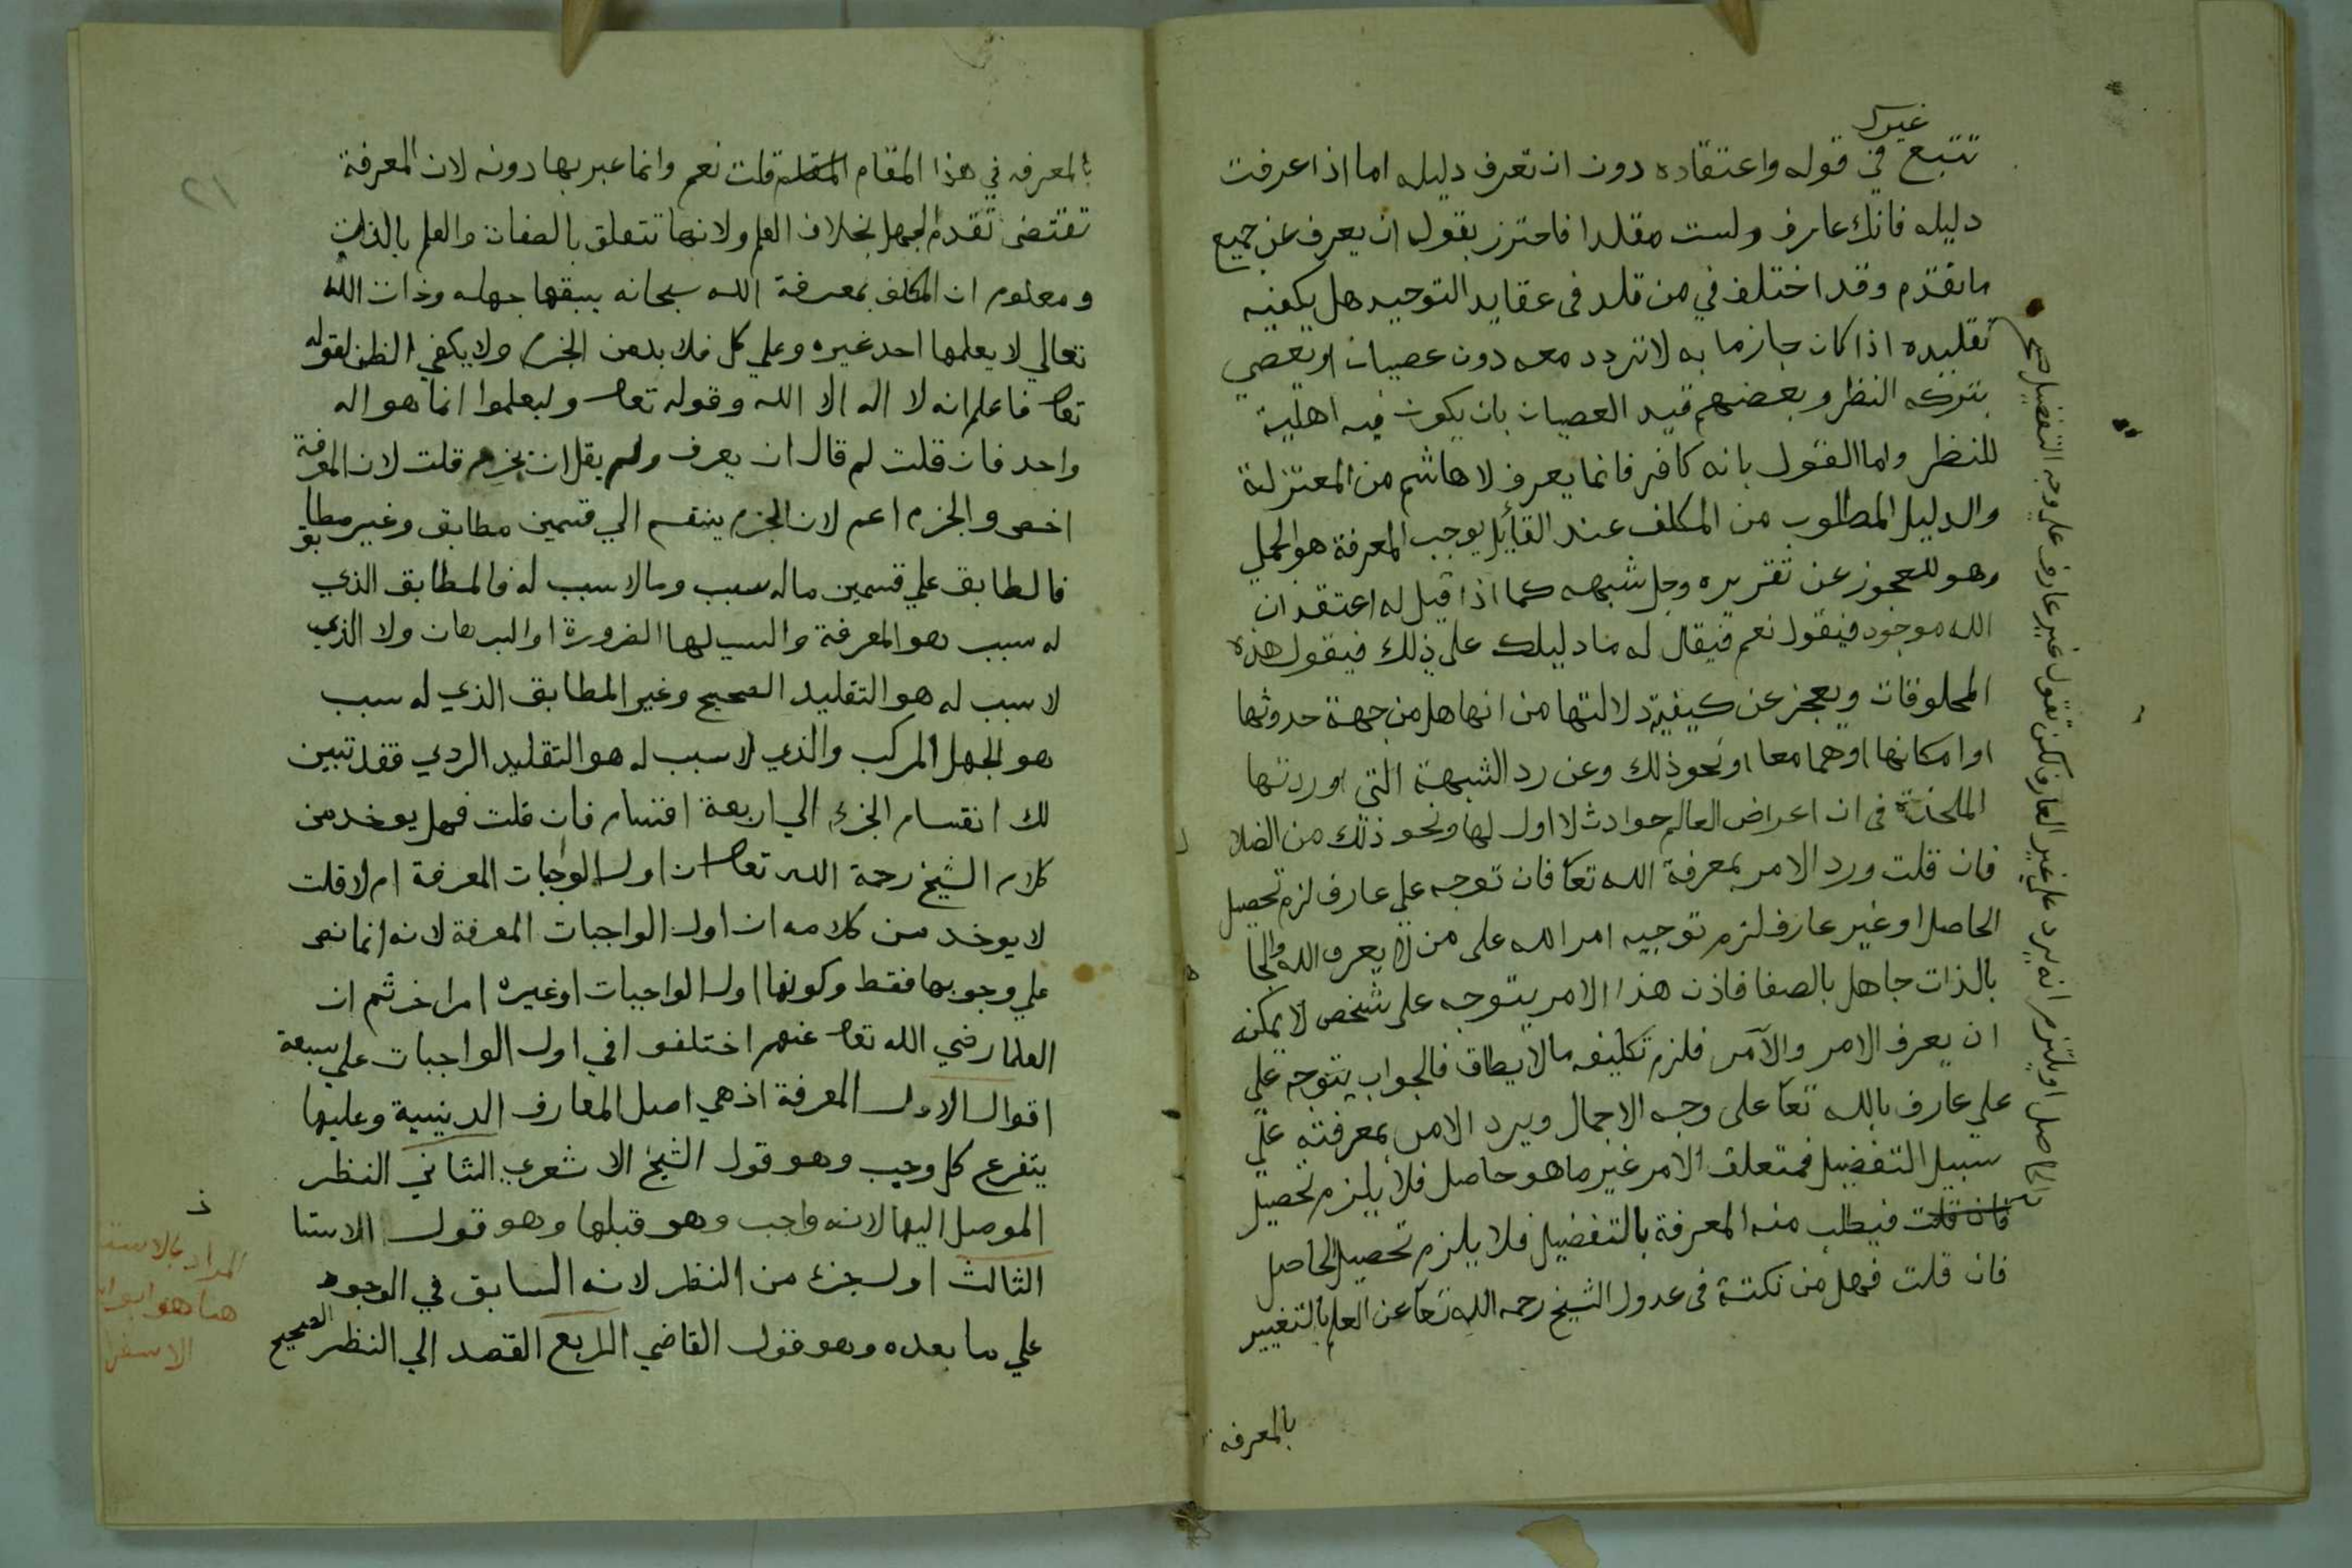 غيرك
تتبع في قوله واعتقاده دون ان تعرف دليله اما اذا عرفت
دليله فانك عارف ولست مقلدا فاحترز بقوله ان يعرف عن جميع
ما تقدم وقد اختلف في من قلد فى عقايد التوحيد هل يكفيه
تقليده اذا كان جازما به لا تردد معه دون عصيان او يعصي
بتركه النظر وبعضهم قيد العصيان بان يكون فيه اهلية
للنظر واما القول بانه كافر فانما يعرف لا هاشم من المعتزلة
والدليل المطلوب من المكلف عند القأيل يوجب المعرفة هو الجملي
وهو للعجوز عن تقريره وحل شبهه كما اذا قيل له اعتقد ان
الله موجود فيقول نعم فيقال له ما دليلك على ذلك فيقول هذه
المخلوقات ويعجز عن كيفية دلالتها من انها هل من جهة حدوثها
او امكانها او هما معا او نحو ذلك وعن رد الشبهة التي اوردتها
الملحدة فى ان اعراض العالم حوادث لا اول لها ونحو ذلك من الضلال
فان قلت ورد الامر بمعرفة الله تعا فان توجه علي عارف لزم تحصيل
الحاصل او غير عارف لزم توجيه امر الله على من لا يعرف الله والجا
بالذات جاهل بالصفا فاذن هذا الامر يتوجه على شخص لا يمكنه
ان يعرف الامر والآمر فلزم تكليفه ما لا يطاق فالجواب يتوجه علي
علي عارف بالله تعا على وجه الاجمال ويرد الامر بمعرفته علي
سبيل التفضيل فمتعلق الامر غير ما هو حاصل فلا يلزم تحصيل
فان قلت فيطلب منه المعرفة بالتفضيل فلا يلزم تحصيل الحاصل
فان قلت فهل من نكتة فى عدول الشيخ رحمه الله تعا عن العلم بالتغيير
بالمعرفه
الحاصل او يلتزم انه يرد على غير العارف لكن نقول غير عارف علي وجه التفضيل صح
٢١
بالمعرفه في هذا المقام قلت نعم وانما عبر بها دونه لان المعرفة
تقتضى تقدم الجهل بخلاف العلم ولانها تتعلق بالصفات والعلم بالذات
ومعلوم ان المكلف بمعرفة الله سبحانه يسبقها جهله وذات الله
تعالي لا يعلمها احد غيره وعلي كل فلا بد من الجزم ولا يكفي الظن لقوله
تعا فاعلم انه لا اله الا الله وقوله تعا وليعلموا انما هو اله
واحد فان قلت لم قال ان يعرف ولم يقل ان يجزم قلت لان المعرفة
اخص والجزم اعم لان الجزم ينقسم الي قسمين مطابق وغير مطابق
فالمطابق علي قسمين ماله سبب وما لا سبب له فالمطابق الذي
له سبب هو المعرفة والسبب لها الضرورة او البرهان ولا الذي
لا سبب له هو التقليد الصحيح وغير المطابق الذي له سبب
هو الجهل المركب والذي لا سبب له هو التقليد الردي فقد تبين
لك انقسام الجزم الي اربعة اقسام فان قلت فهل يوخد من
كلام الشيخ رحمة الله تعا ان اول الواجبات المعرفة ام لا قلت
لا يوخد من كلامه ان اول الواجبات المعرفة لانه انما نص
علي وجوبها فقط وكونها اول الواجبات او غيره امر اخر ثم ان
العلما رضي الله تعا عنهم اختلفوا في اول الواجبات علي سبعة
اقوال الاول المعرفة اذ هي اصل المعارف الدينية وعليها
يتفرع كل وجيب وهو قول الشيخ الاشعري الثاني النظر
الموصل اليها لانه واجب وهو قبلها وهو قول الاستا
الثالث اول جزء من النظر لانه السابق في الوجود
علي ما بعده وهو قول القاضي الرابع القصد الي النظر الصحيح
ذ
المراد بالاستا
هنا هو ابوا
الاسفرا